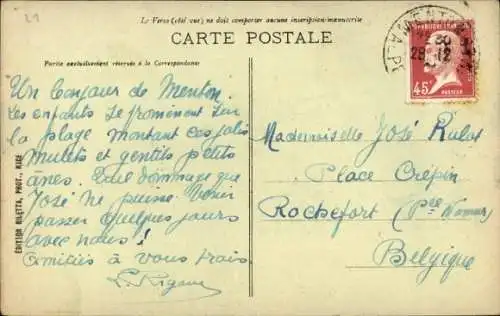 21
Le Verso (côté vue) ne doit comporter aucune inscription manuscrite
CARTE POSTALE
Partie exclusivement réservée à la Correspondance
Un bonjour de Menton.
Les enfants se promènent sur
la plage montant ces jolis
mulets et gentils petits
ânes. Quel dommage que
José ne puisse venir
passer quelques jours
avec nous !
Amitiés à vous trois.
L. Rigaux
Mademoiselle José
Place Crépin
Rochefort (Pce Namur)
Belgique
ÉDITION GILETTA, PHOT., NICE
MENTON
28 - 12
45c
PASTEUR